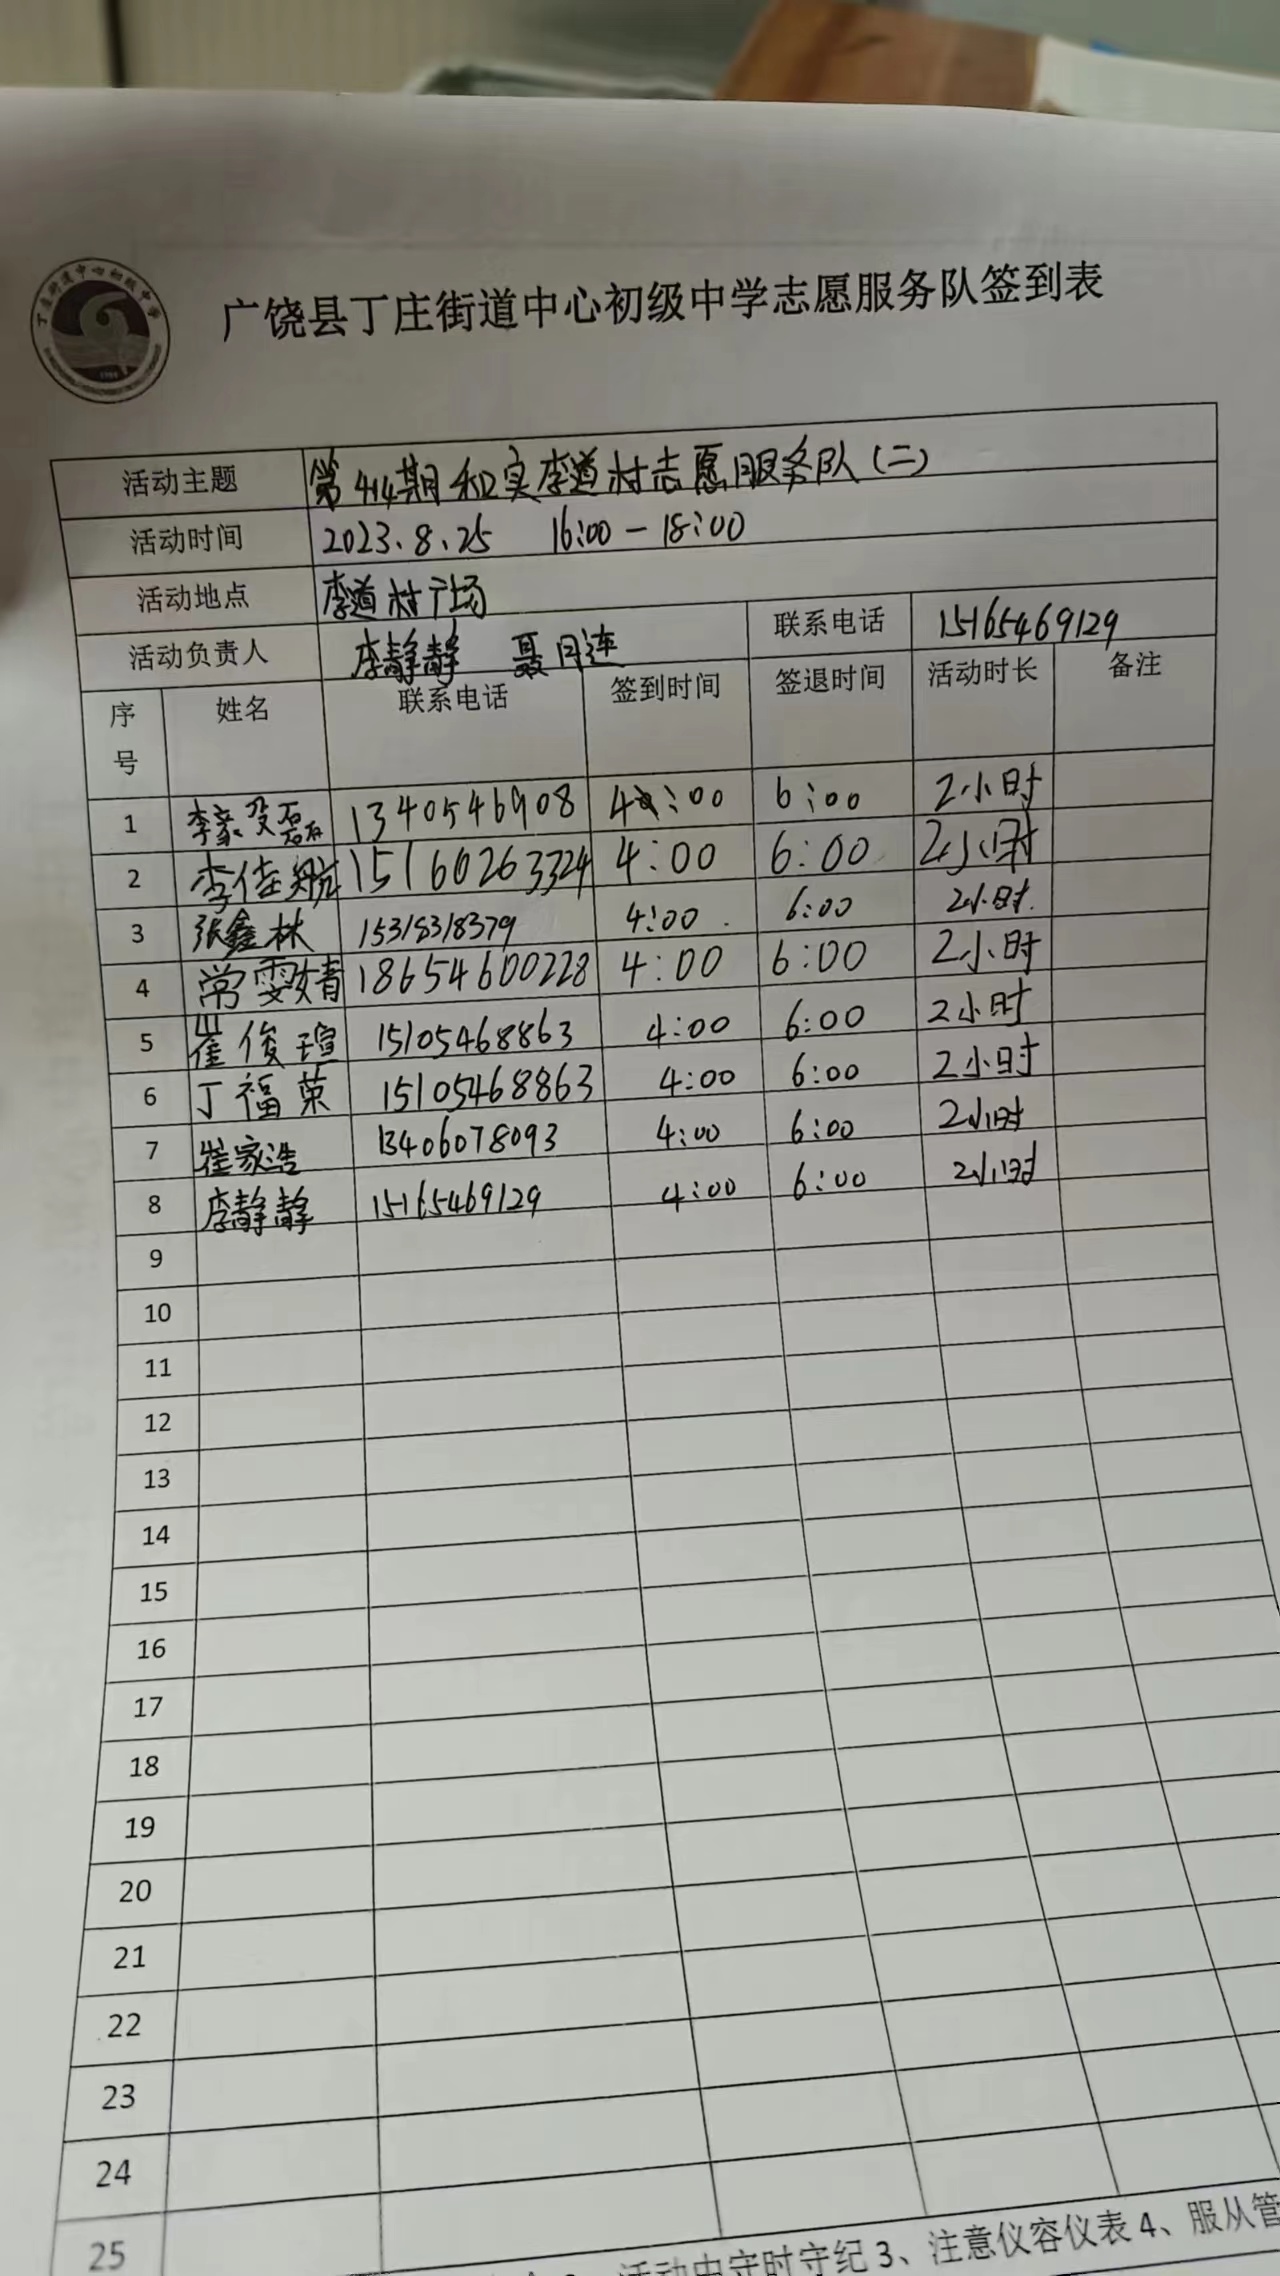 丁庄街道中心初级中学
广饶县丁庄街道中心初级中学志愿服务队签到表
活动主题 第414期和实李道村志愿服务队（二）
活动时间 2023.8.25 16:00-18:00
活动地点 李道村广场
活动负责人 李静静 聂月连 联系电话 15165469129
序号 姓名 联系电话 签到时间 签退时间 活动时长 备注
1 李豪 磊 1340546908 4:00 6:00 2小时
2 李佳 15160263324 4:00 6:00 2小时
3 张鑫林 15318318379 4:00 6:00 2小时
4 常雯婧 18654600228 4:00 6:00 2小时
5 崔俊瑄 15105468863 4:00 6:00 2小时
6 丁福荣 15105468863 4:00 6:00 2小时
7 崔家浩 13406078093 4:00 6:00 2小时
8 李静静 15165469129 4:00 6:00 2小时
9
10
11
12
13
14
15
16
17
18
19
20
21
22
23
24
25
活动中守时守纪 3、注意仪容仪表 4、服从管